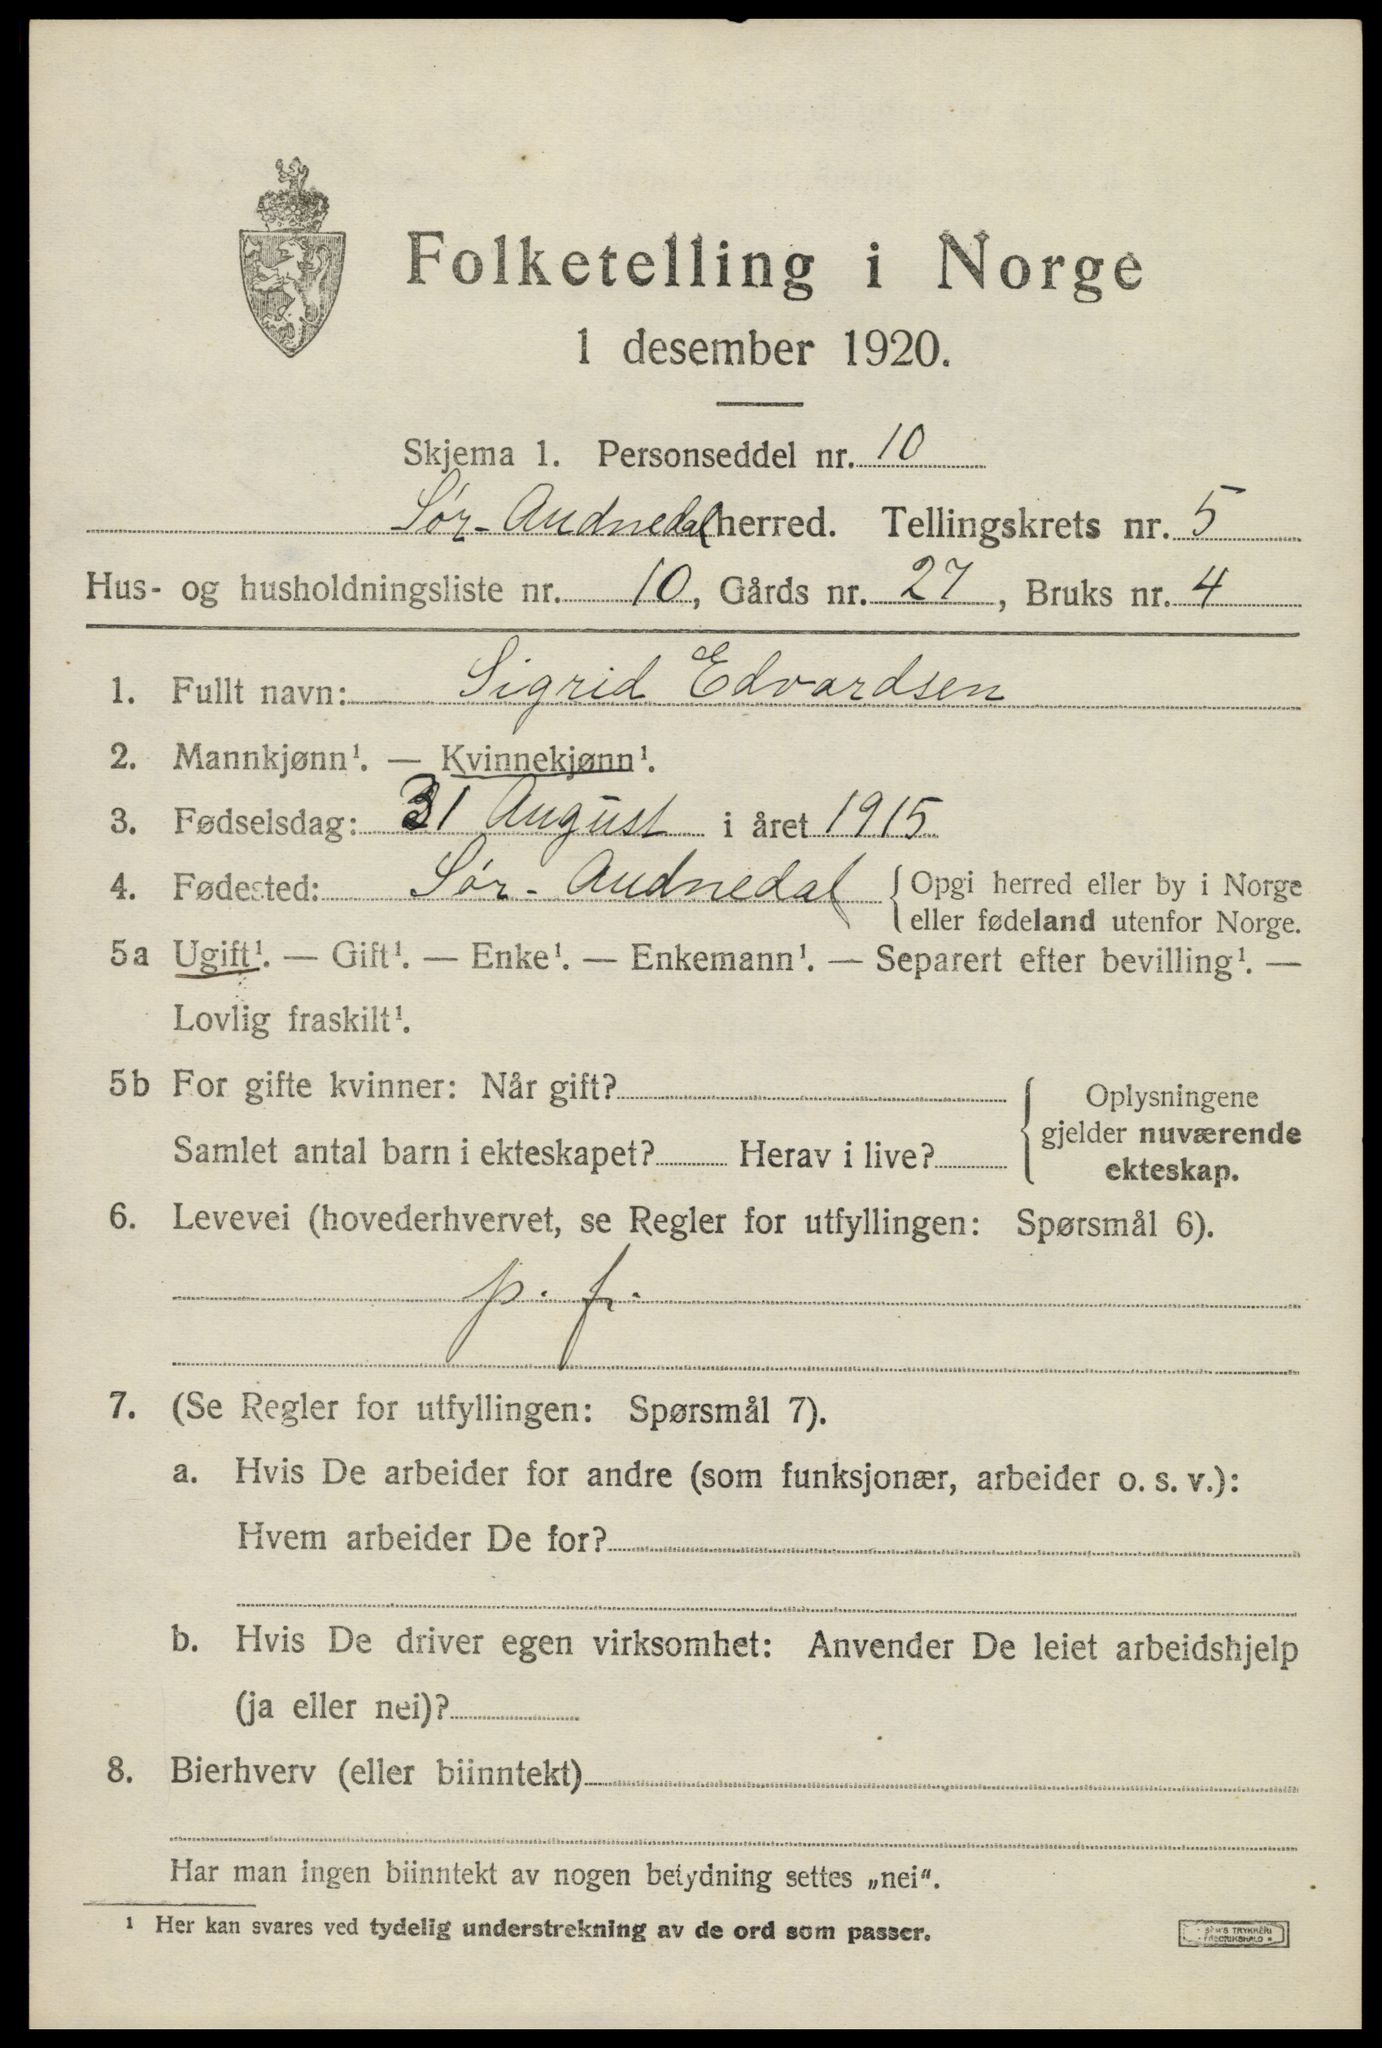 Folketelling i Norge
1 desember 1920.
Skjema 1. Personseddel nr. 10
Sør-Audnedal herred. Tellingskrets nr. 5
Hus- og husholdningsliste nr. 10, Gårds nr. 27, Bruks nr. 4
1. Fullt navn: Sigrid Edvardsen
2. Mannkjønn¹. — Kvinnekjønn¹.
3. Fødselsdag: 31 August i året 1915
4. Fødested: Sør-Audnedal { Opgi herred eller by i Norge
eller fødeland utenfor Norge.
5a Ugift¹. — Gift¹. — Enke¹. — Enkemann¹. — Separert efter bevilling¹. —
Lovlig fraskilt¹.
5b For gifte kvinner: Når gift?
Samlet antal barn i ekteskapet? Herav i live?
Oplysningene
gjelder nuværende
ekteskap.
6. Levevei (hovederhvervet, se Regler for utfyllingen: Spørsmål 6).
p. f.
7. (Se Regler for utfyllingen: Spørsmål 7).
a. Hvis De arbeider for andre (som funksjonær, arbeider o. s. v.):
Hvem arbeider De for?
b. Hvis De driver egen virksomhet: Anvender De leiet arbeidshjelp
(ja eller nei)?
8. Bierhverv (eller biinntekt)
Har man ingen biinntekt av nogen betydning settes „nei".
¹ Her kan svares ved tydelig understrekning av de ord som passer.
TRYKKERI
FREDRIKSHALD